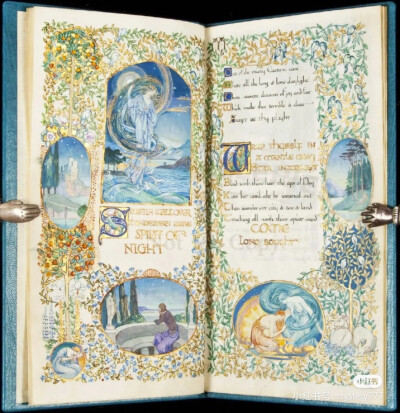 SPIRIT OF
NIGHT
Out of the misty Eastern cave
Where all the long & lone daylight
Thou wovest dreams of joy and fear
Which make thee terrible & dear
Swift be thy flight
IN
A MANTLE GRAY
STAR INWROUGHT
Blind with thine hair the eyes of Day
Kiss her until she be wearied out
Then wander o'er city & sea & land
Touching all with thine opiate wand
COME
LONG SOUGHT
小红书